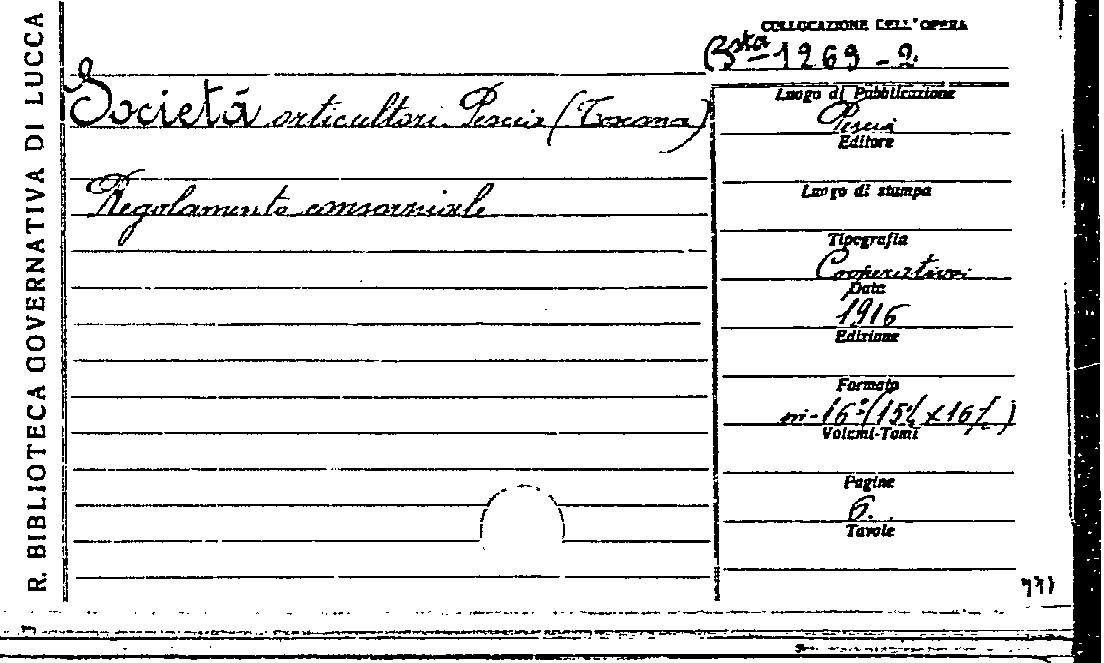 R. BIBLIOTECA GOVERNATIVA DI LUCCA
COLLOCAZIONE DELL'OPERA
Bsta 1269-2
Società orticultori Pescia (Toscana)
Regolamento consorziale
Luogo di Pubblicazione
Pescia
Editore
Luogo di stampa
Tipografia
Cooperativa
Data
1916
Edizione
Formato
in-16º (15½ x
Volumi-Tomi
Pagine
6.
Tavole